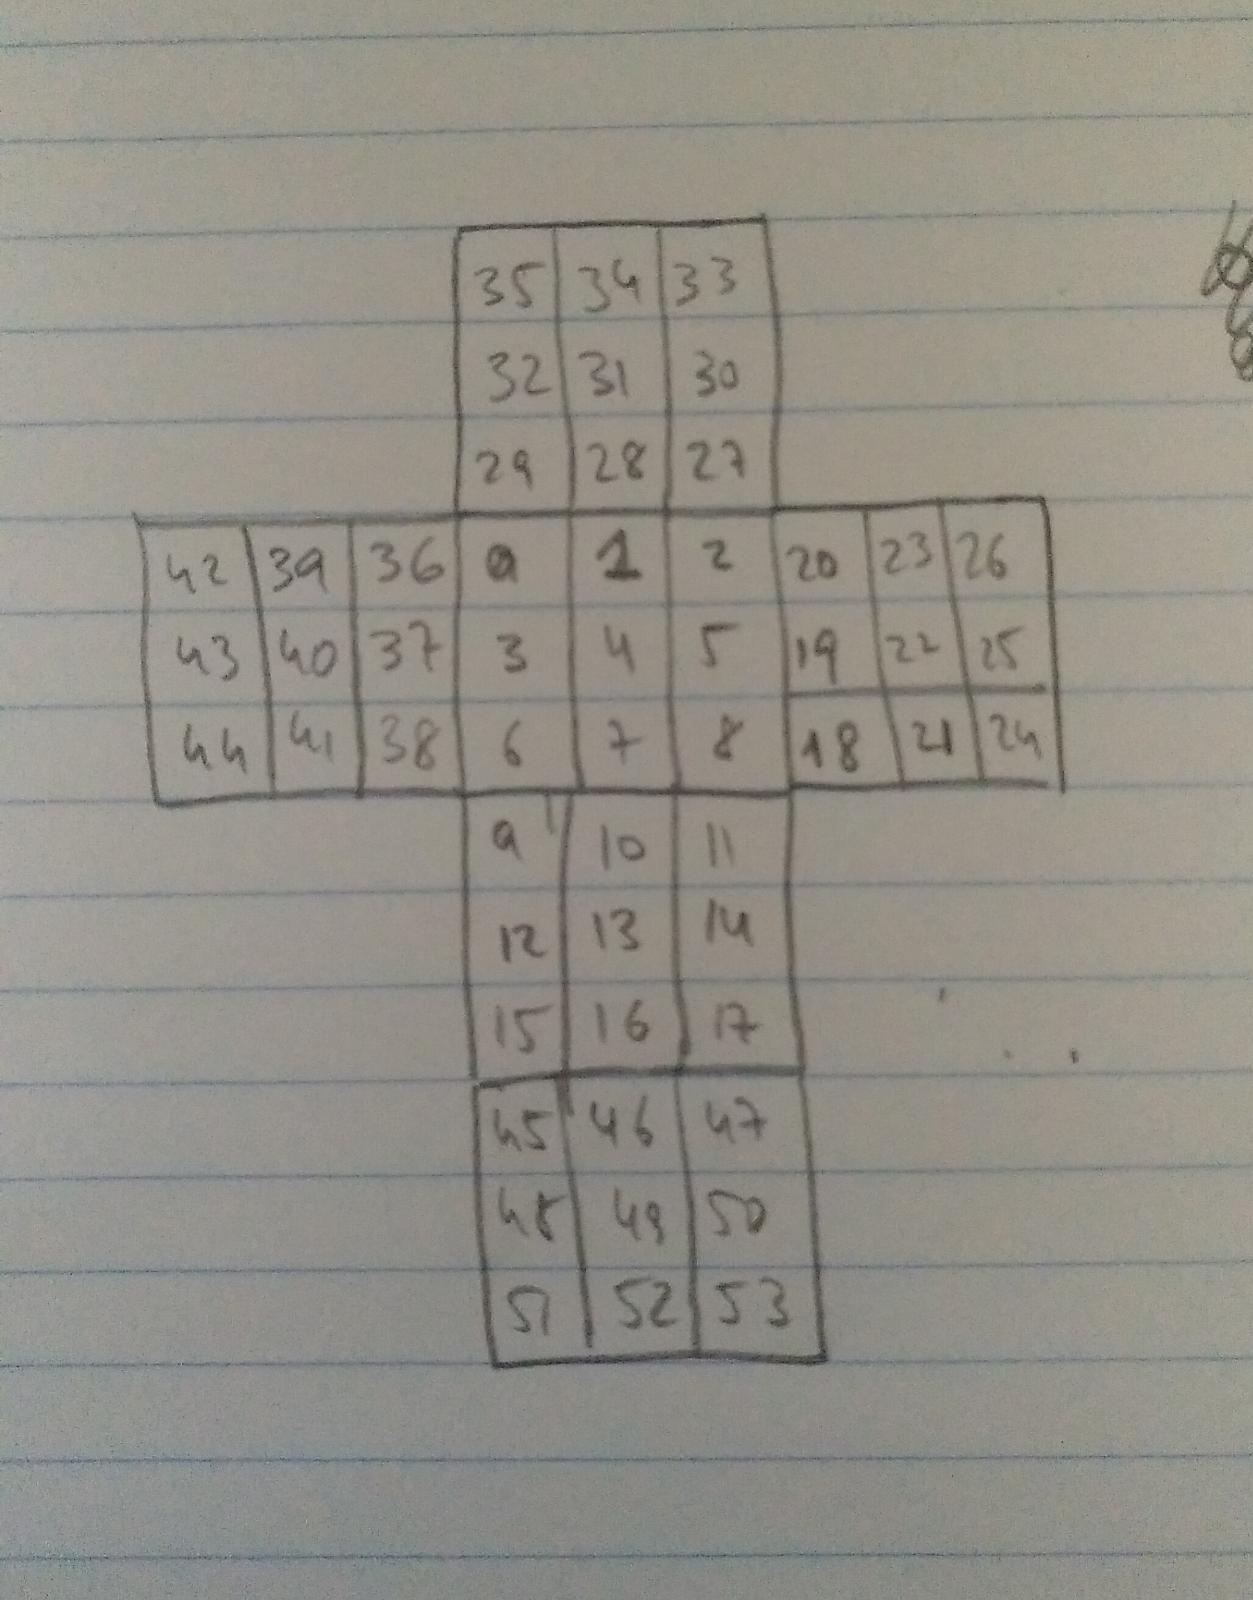 35 34 33
32 31 30
29 28 27
42 39 36 0 1 2 20 23 26
43 40 37 3 4 5 19 22 25
44 41 38 6 7 8 18 21 24
9 10 11
12 13 14
15 16 17
45 46 47
48 49 50
51 52 53